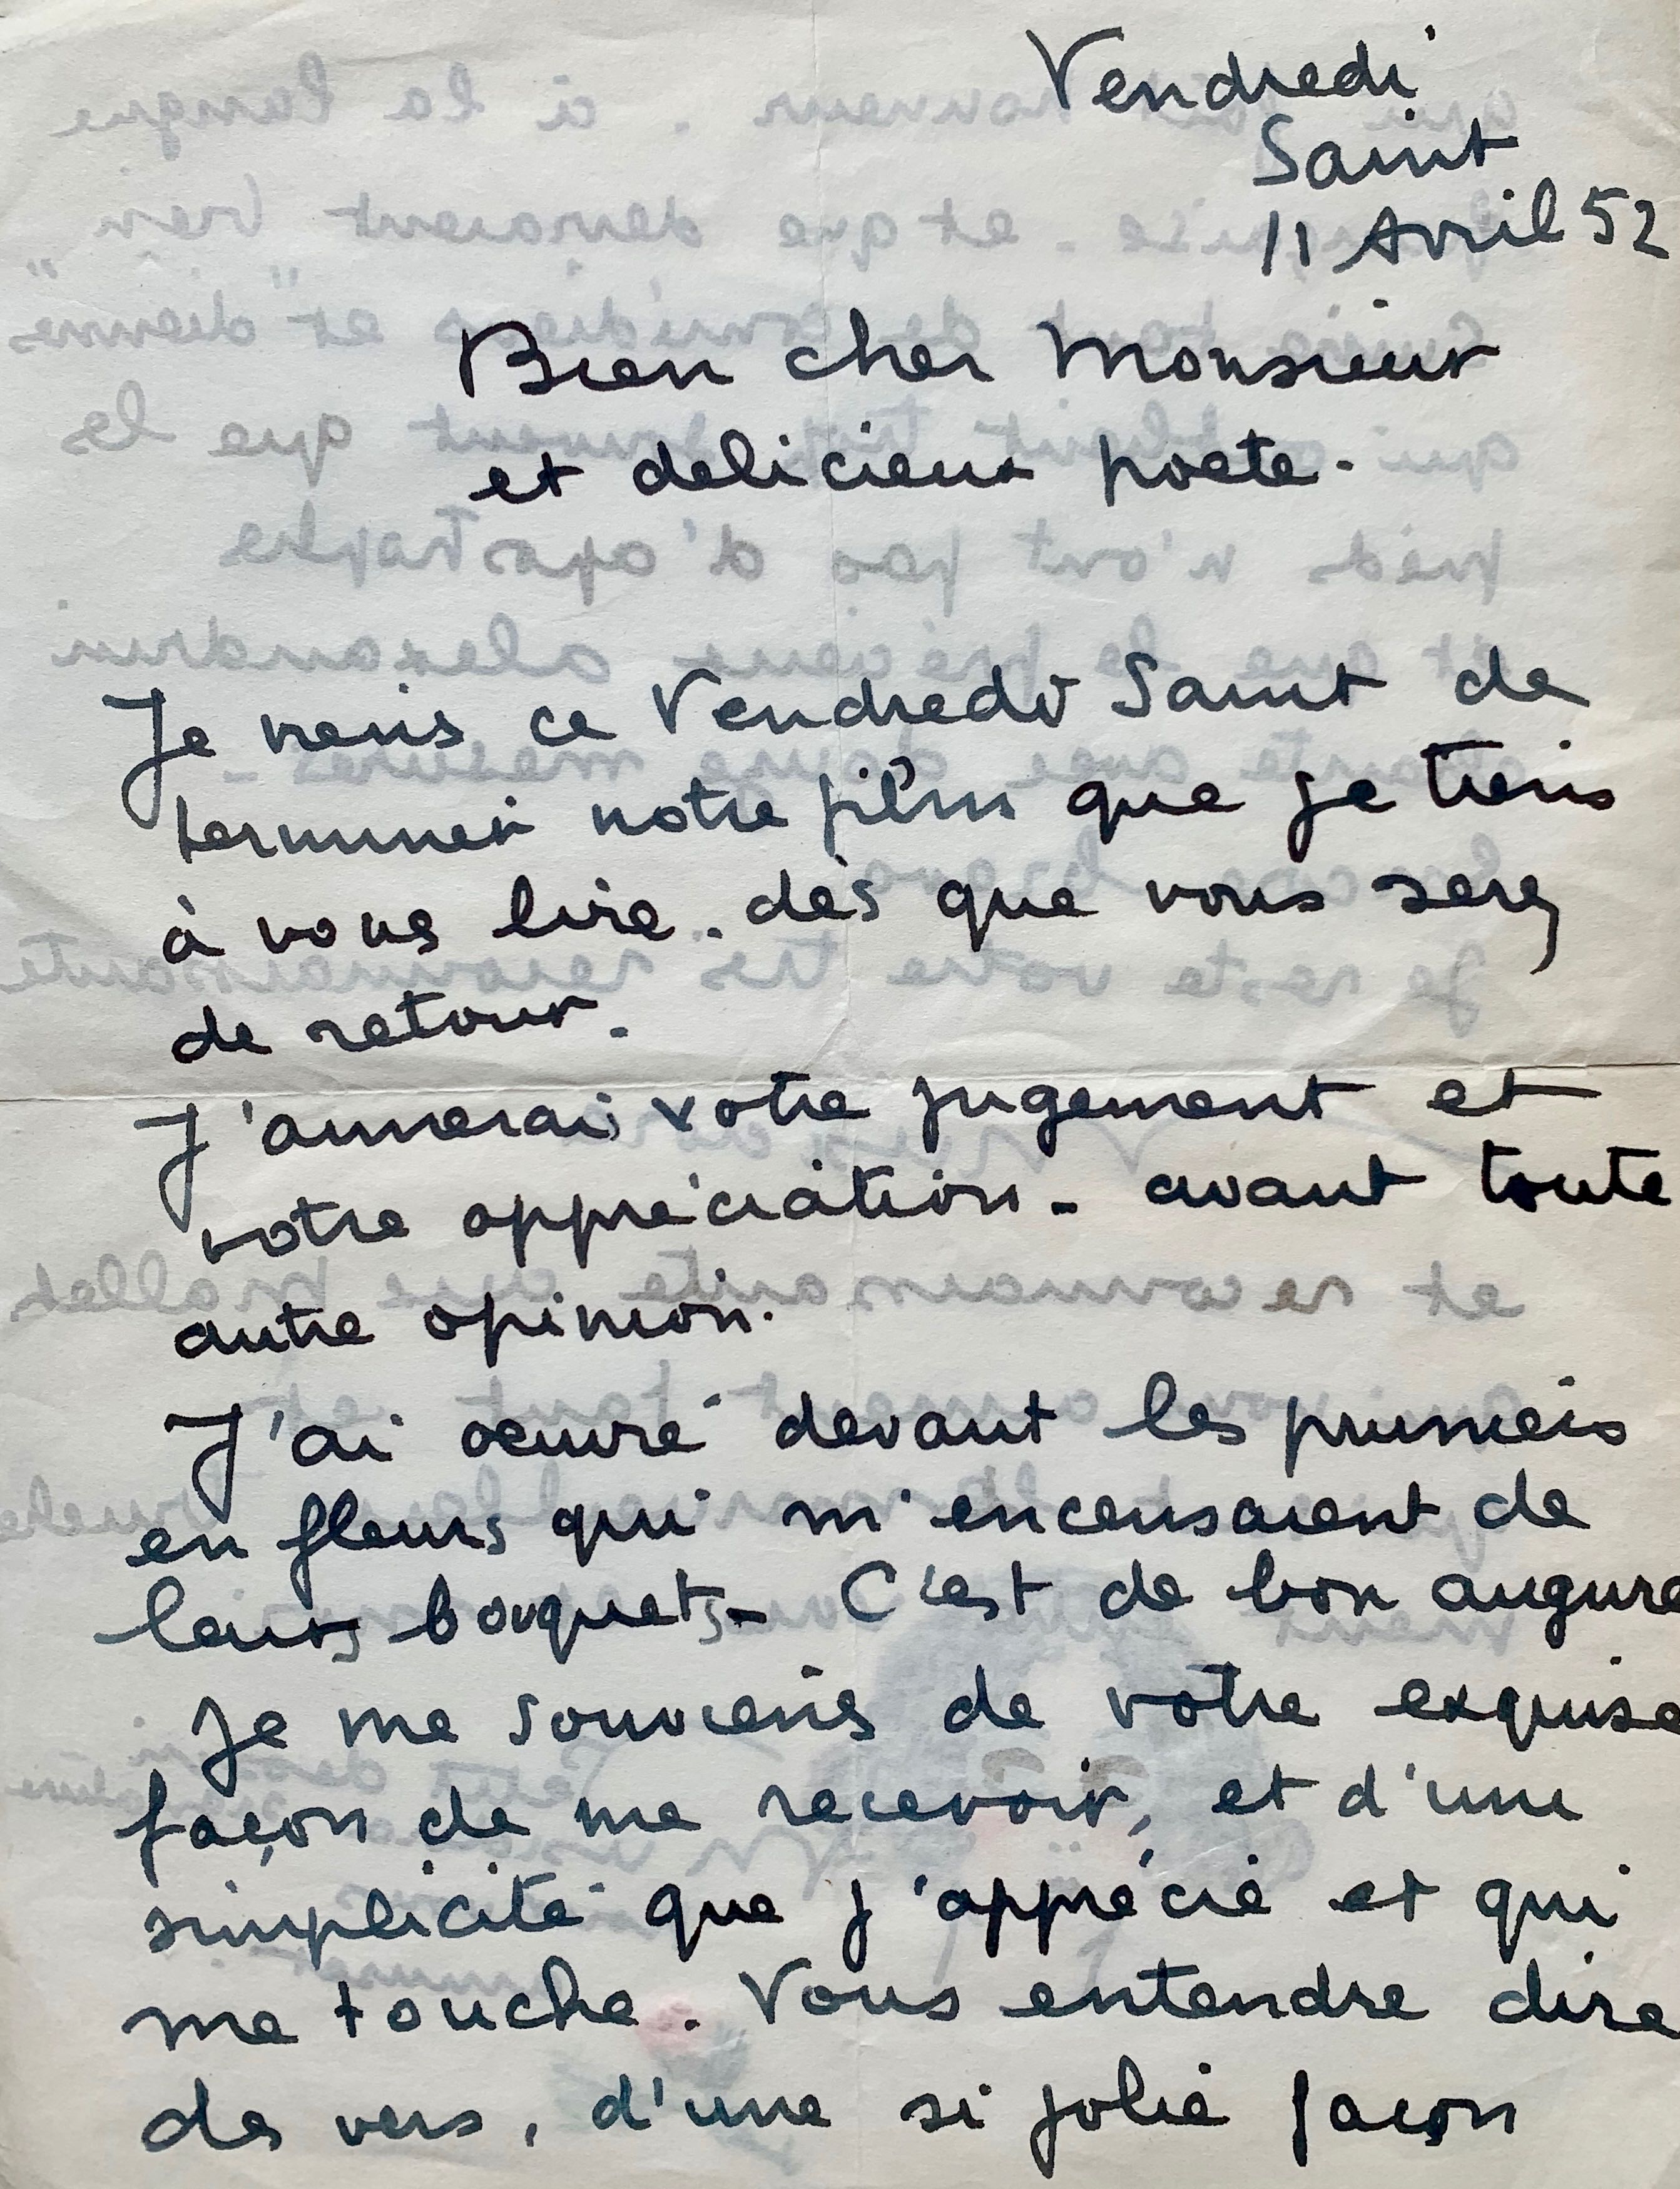 Vendredi
Saint
11 Avril 52
Bien cher Monsieur
et delicieux poete.
Je viens ce Vendredi Saint de
terminer notre film que je tiens
à vous lire. dès que vous serez
de retour.
J'aimerais votre jugement et
votre appréciation - avant toute
autre opinion.
J'ai oeuvré devant les pruniers
en fleurs qui m'encensaient de
leurs bouquets - C'est de bon augure
Je me souviens de votre exquise
façon de me recevoir, et d'une
simplicité que j'apprécie et qui
me touche. Vous entendre dire
des vers, d'une si jolie façon